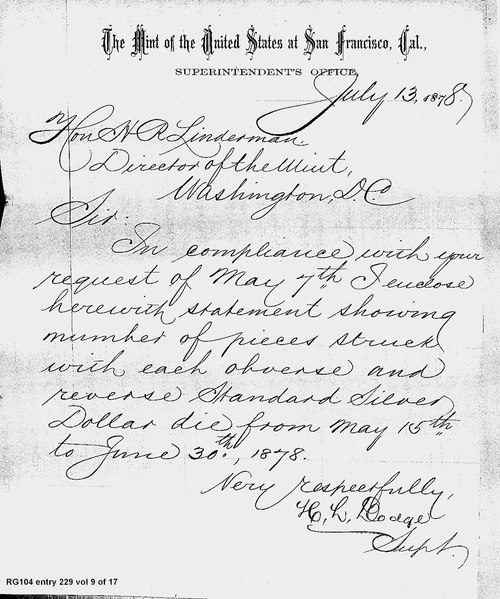 The Mint of the United States at San Francisco, Cal.,
SUPERINTENDENT'S OFFICE,
July 13, 1878.
Hon H R Linderman.
Director of the Mint,
Washington, D.C.
Sir:
In compliance with your
request of May 7th I enclose
herewith statement showing
number of pieces struck
with each obverse and
reverse Standard Silver
Dollar die from May 15th
to June 30th, 1878.
Very respectfully,
H. L. Dodge
Supt.
RG104 entry 229 vol 9 of 17